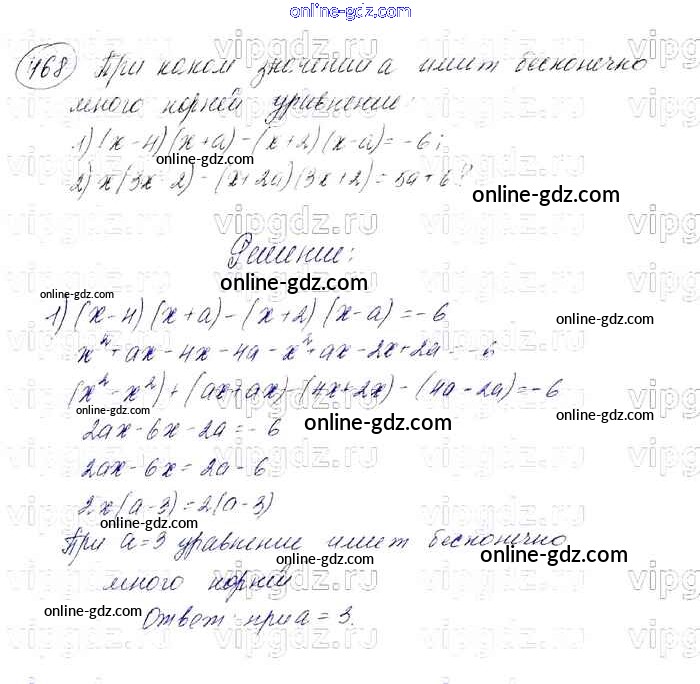 online-gdz.com
468 При каком значении а имеет бесконечно
много корней уравнение:
1) (x-4)(x+a)-(x+2)(x-a)=-6;
online-gdz.com
2) x(3x-2)-(x+2a)(3x+2)=5a+6?
online-gdz.com
Решение:
online-gdz.com
online-gdz.com
1) (x-4)(x+a)-(x+2)(x-a)=-6
online-gdz.com
x²+ax-4x-4a-x²+ax-2x+2a=-6
(x²-x²)+(ax+ax)-(4x+2x)-(4a-2a)=-6
online-gdz.com
online-gdz.com
online-gdz.com
2ax-6x-2a=-6
2ax-6x=2a-6
2x(a-3)=2(a-3)
online-gdz.com
При а=3 уравнение имеет бесконечно
online-gdz.com
много корней
online-gdz.com
online-gdz.com
Ответ: при а=3.
vipgdz.ru